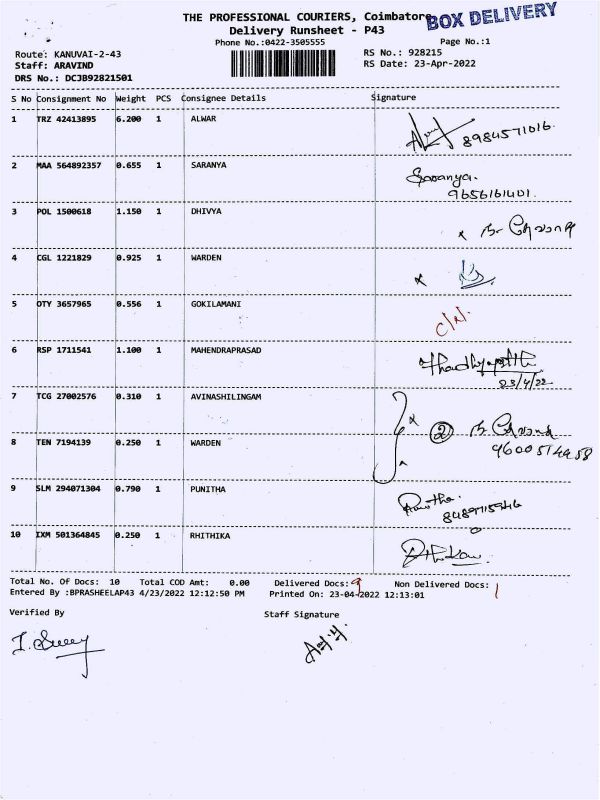 THE PROFESSIONAL COURIERS, Coimbatore
BOX DELIVERY
Delivery Runsheet - P43
Phone No.:0422-3505555
Page No.:1
Route: KANUVAI-2-43
RS No.: 928215
Staff: ARAVIND
RS Date: 23-Apr-2022
DRS No.: DCJB92821501
S No Consignment No Weight PCS Consignee Details Signature
1 TRZ 42413895 6.200 1 ALWAR
8984571016.
2 MAA 564892357 0.655 1 SARANYA Saranya.
9656161401.
3 POL 1500618 1.150 1 DHIVYA
4 CGL 1221829 0.925 1 WARDEN
5 OTY 3657965 0.556 1 GOKILAMANI C/N.
6 RSP 1711541 1.100 1 MAHENDRAPRASAD
23/4/22
7 TCG 27002576 0.310 1 AVINASHILINGAM
2
8 TEN 7194139 0.250 1 WARDEN
9600514958
9 SLM 294071304 0.790 1 PUNITHA
10 IXM 501364845 0.250 1 RHITHIKA
Total No. Of Docs: 10 Total COD Amt: 0.00 Delivered Docs: 9 Non Delivered Docs: 1
Entered By :BPRASHEELAP43 4/23/2022 12:12:50 PM Printed On: 23-04-2022 12:13:01
Verified By Staff Signature